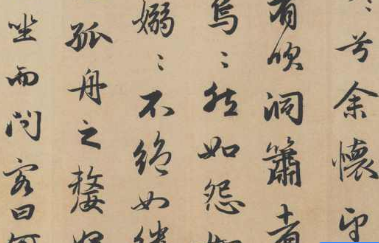 兮余懷
有吹洞簫者
焉〻然如怨
嫋〻不絕如縷
孤舟之嫠婦
坐而問客曰何